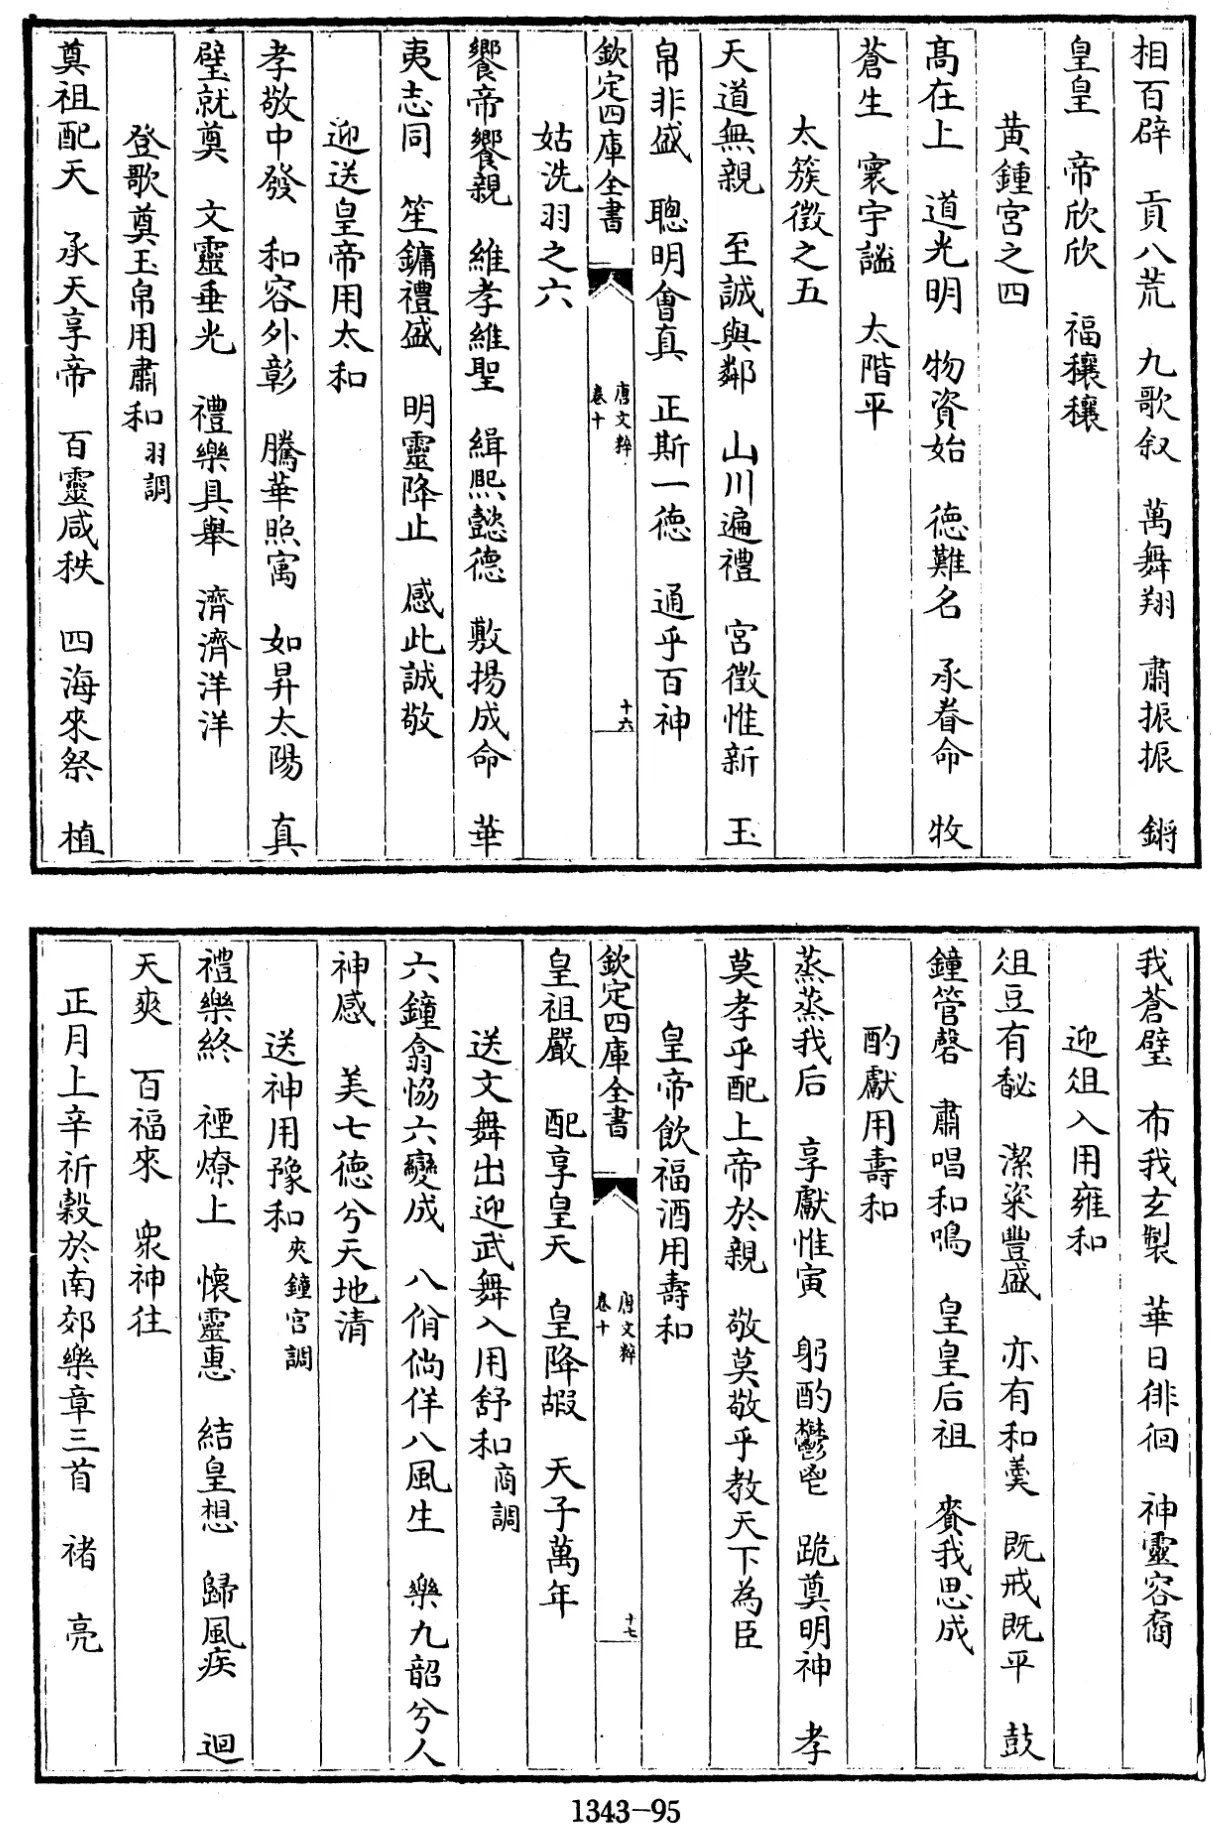 相百辟　貢八荒　九歌叙　萬舞翔　肅振振　鏘
皇皇　帝欣欣　福穰穰
黄鍾宮之四
髙在上　道光明　物資始　徳難名　承眷命　牧
蒼生　寰宇謐　太階平
太簇徴之五
天道無親　至誠與鄰　山川遍禮　宮徴惟新　玉
帛非盛　聰明會真　正斯一徳　通乎百神
欽定四庫全書
唐文粹
卷十
十六
姑洗羽之六
饗帝饗親　維孝維聖　緝熙懿德　敷揚成命　華
夷志同　笙鏞禮盛　明靈降止　感此誠敬
迎送皇帝用太和
孝敬中發　和容外彰　騰華照寓　如昇太陽　真
璧就奠　文靈垂光　禮樂具舉　濟濟洋洋
登歌奠玉帛用肅和羽調
奠祖配天　承天享帝　百靈咸秩　四海來祭　植
我蒼璧　布我玄製　華日徘徊　神靈容裔
迎俎入用雍和
俎豆有馝　潔粢豐盛　亦有和羹　既戒既平　鼓
鐘管磬　肅唱和鳴　皇皇后祖　賚我思成
酌獻用壽和
蒸蒸我后　享獻惟寅　躬酌鬱鬯　跪奠明神　孝
莫孝乎配上帝於親　敬莫敬乎教天下為臣
皇帝飲福酒用壽和
欽定四庫全書
唐文粹
卷十
十七
皇祖嚴　配享皇天　皇降嘏　天子萬年
送文舞出迎武舞入用舒和商調
六鐘翕協六變成　八佾倘佯八風生　樂九韶兮人
神感　美七德兮天地清
送神用豫和夾鐘宮調
禮樂終　禋燎上　懷靈惠　結皇想　歸風疾　迴
天爽　百福來　衆神往
正月上辛祈穀於南郊樂章三首　褚　亮
1343-95